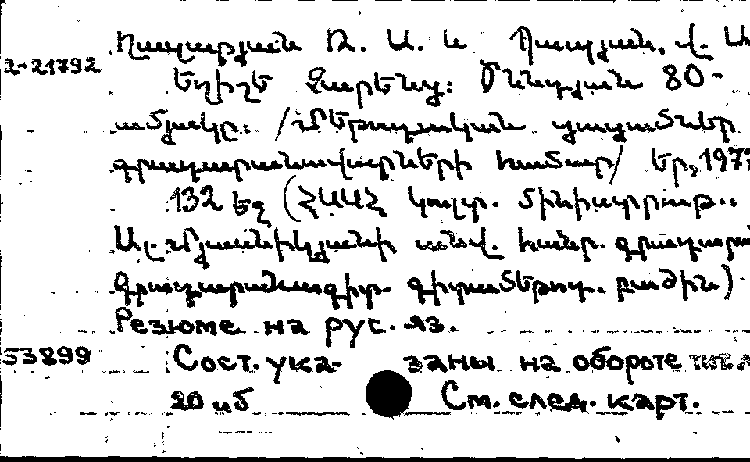 Ղազարյան Ռ. Ա. և Պապյան, Վ. Ա
2-21792
Եղիշե Չարենց: Ծննդյան 80-
ամյակը: /Մեթոդական ցուցումներ
գրադարանավարների համար/ Եր., 197
132 եջ (ՀՍՍՀ կուլտ. մինիստրութ..
Ալ. Մյասնիկյանի անվ. հանր. գրադարան
Գրադարանագիտ. գիտամեթոդ. բաժին)
Резюме на рус. яз.
53899
Сост. ука- заны на обороте тит. л
20 иб См. след. карт.